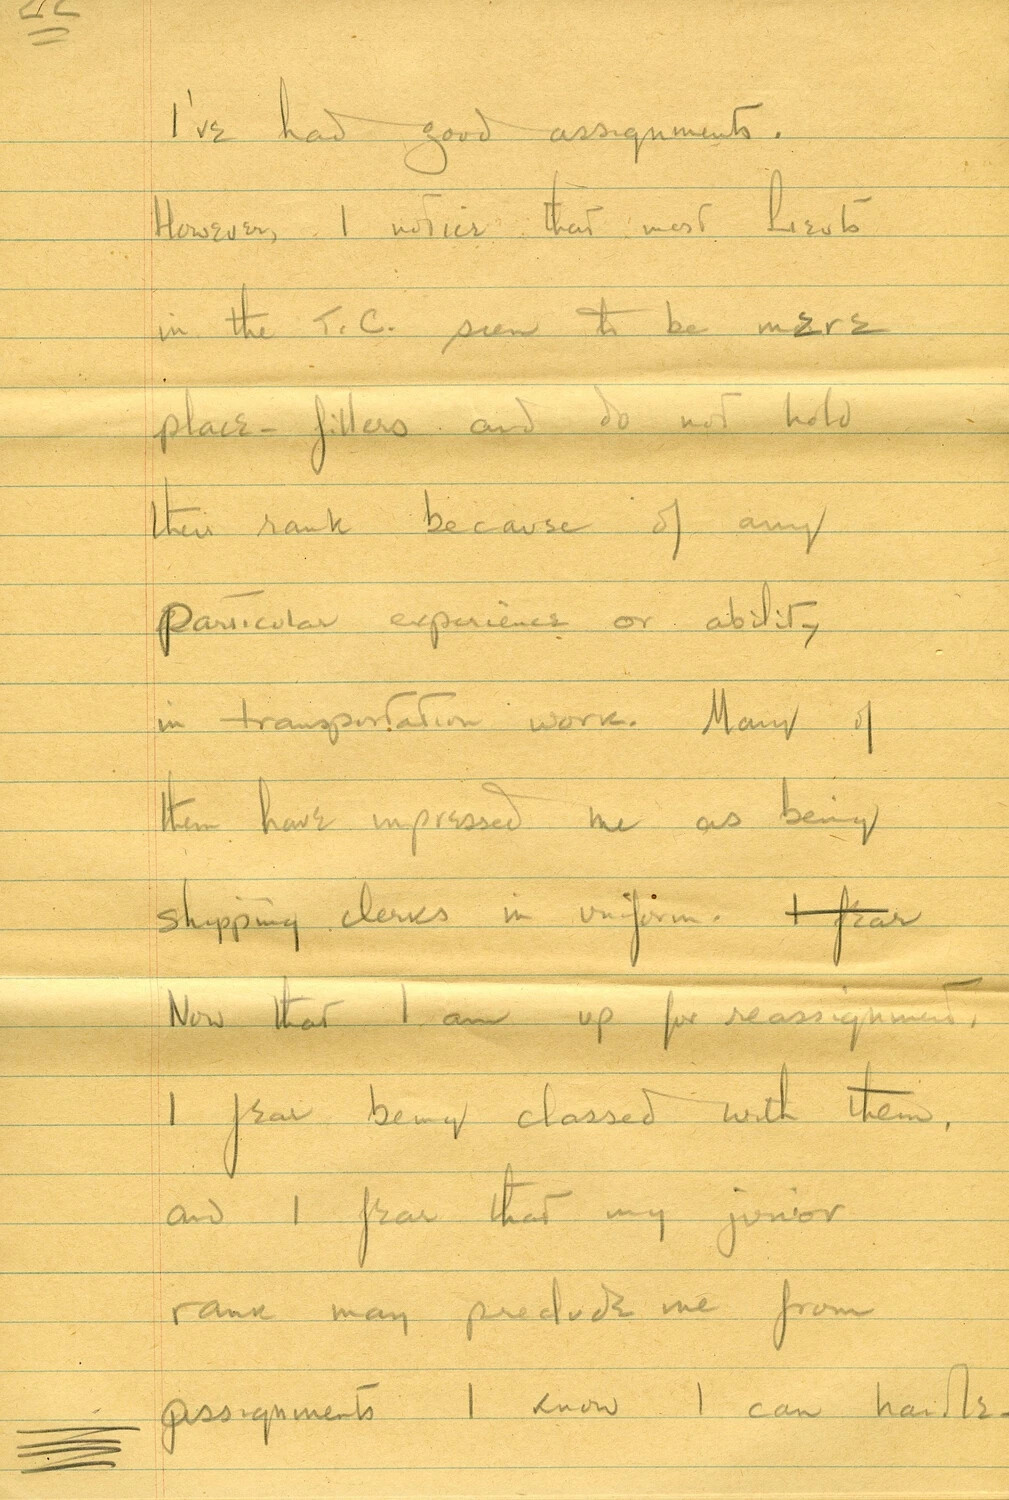 I've had good assignments.
However, I notice that most Lieuts
in the T.C. seem to be mere
place-fillers and do not hold
their rank because of any
particular experience or ability
in transportation work. Many of
them have impressed me as being
shipping clerks in uniform. I fear
Now that I am up for reassignment,
I fear being classed with them,
and I fear that my junior
rank may preclude me from
assignments I know I can handle-